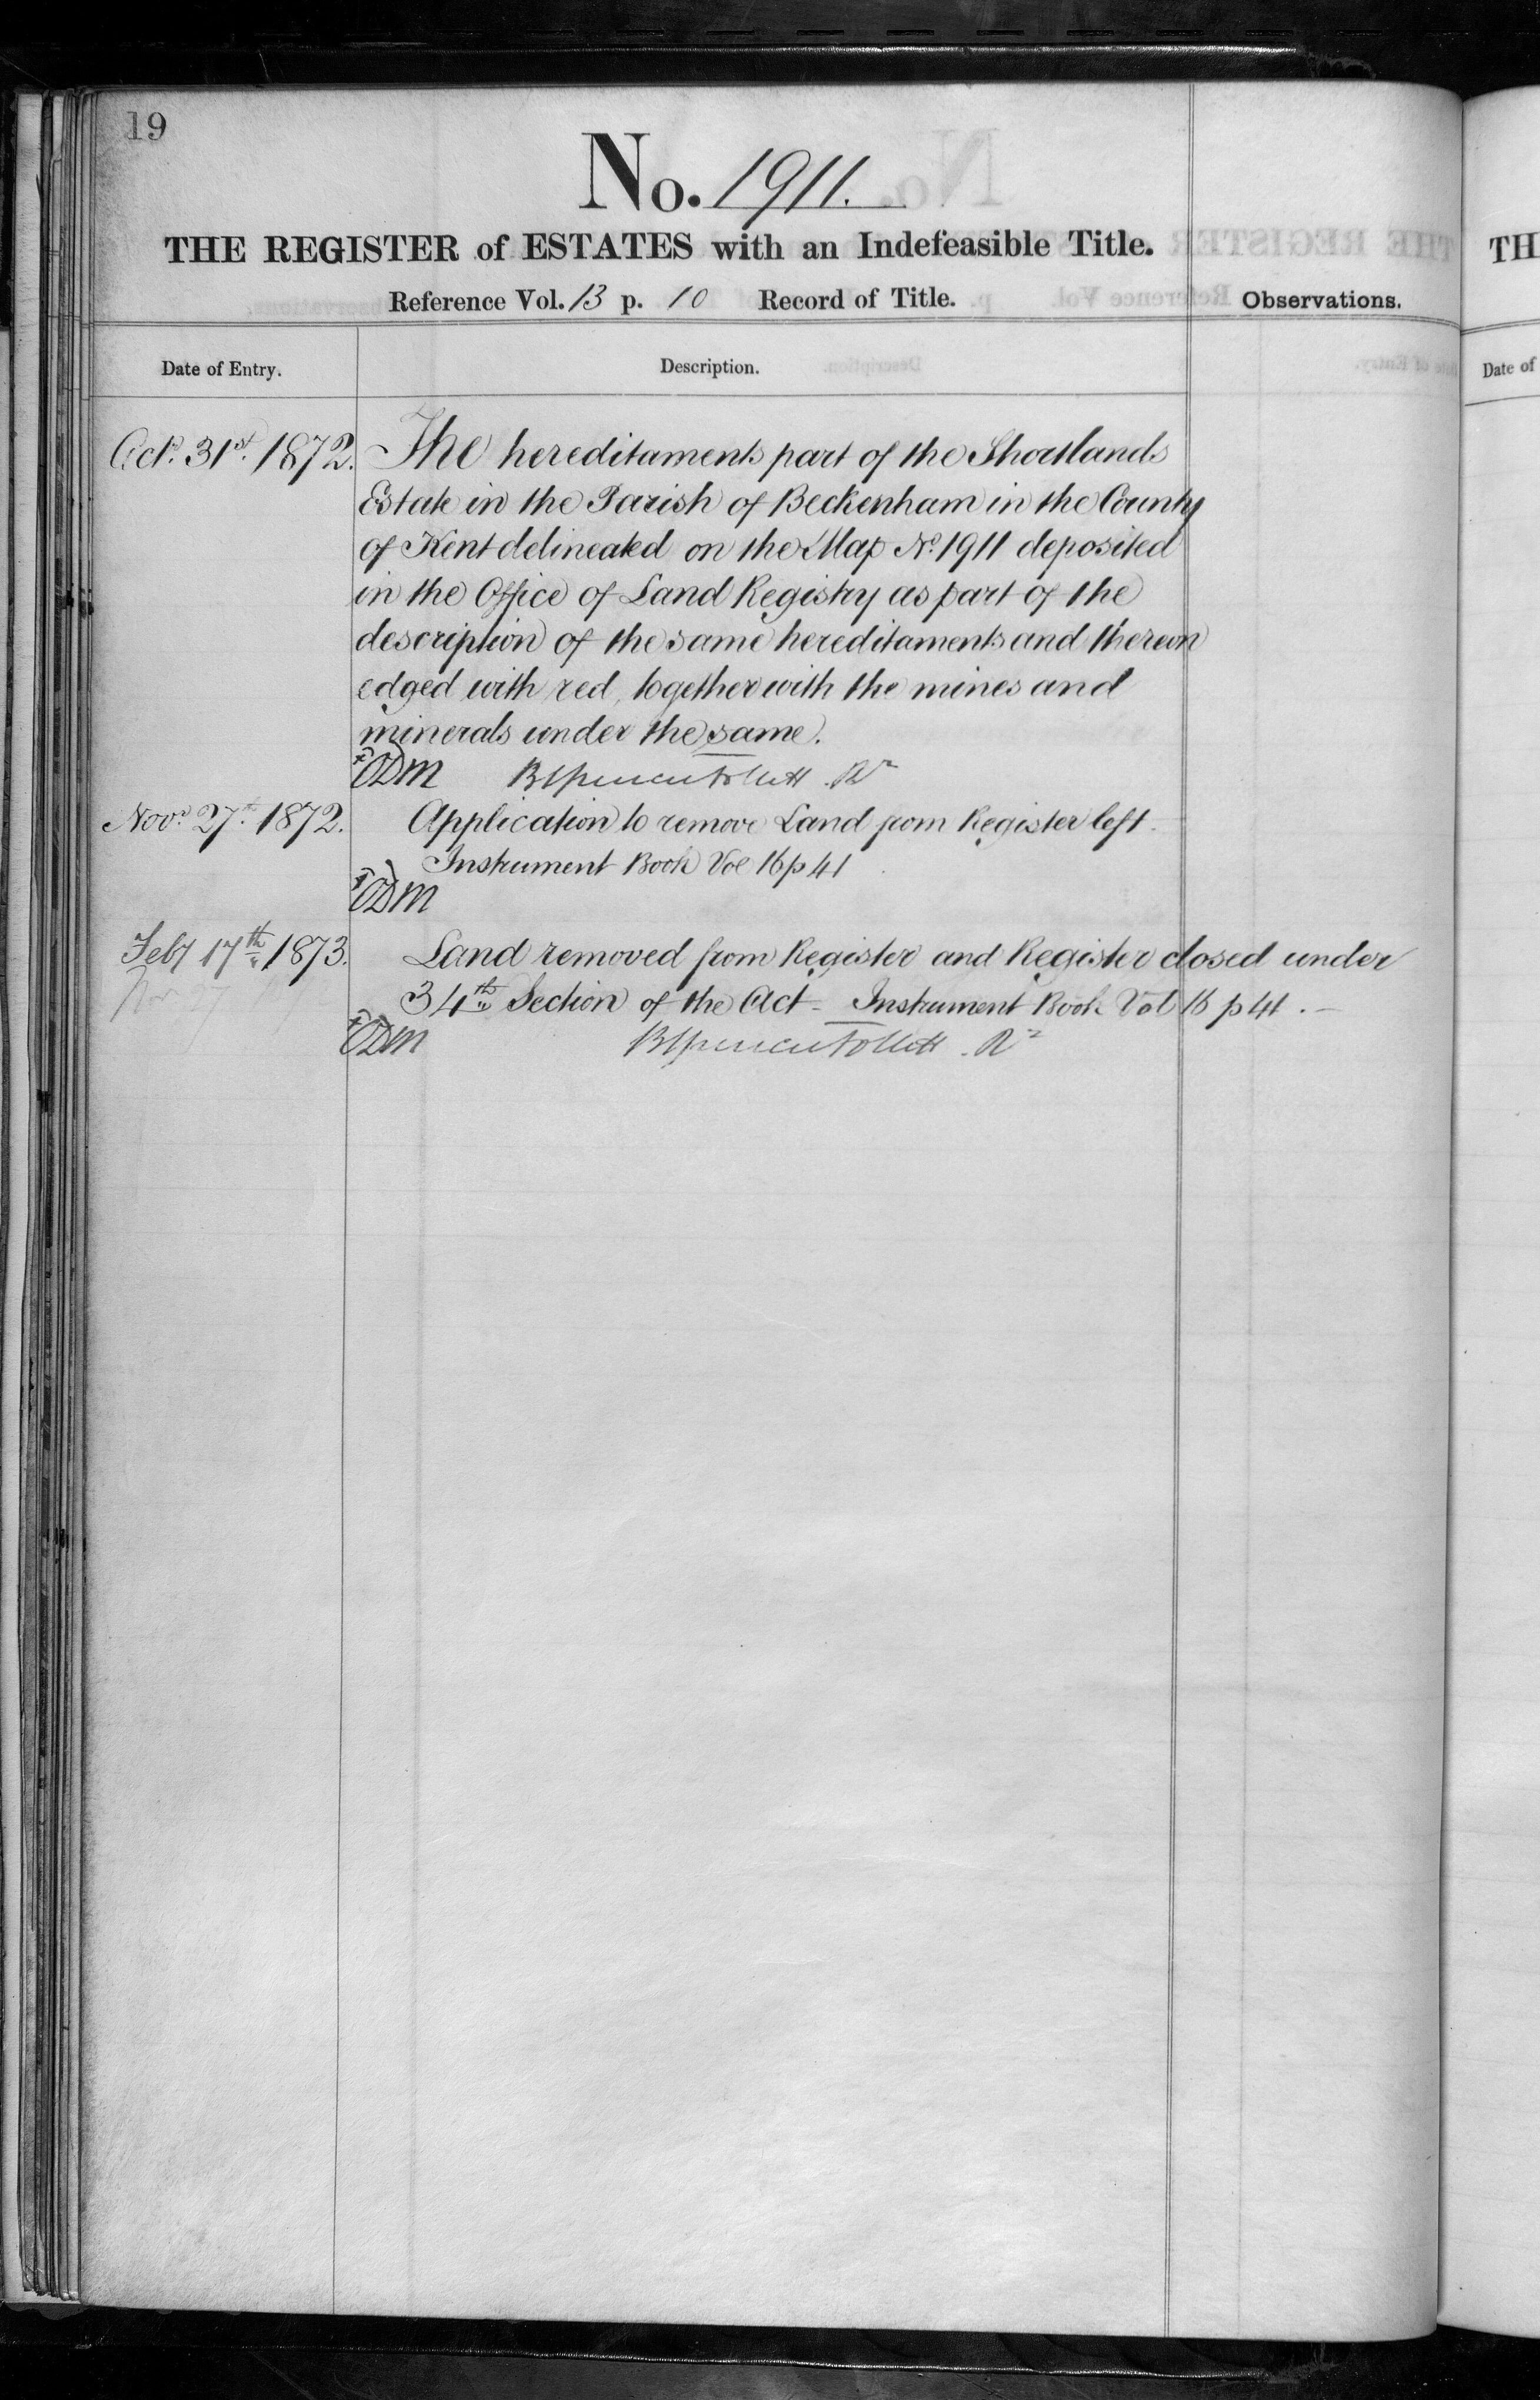 19
No. 1911.
THE REGISTER of ESTATES with an Indefeasible Title.
Reference Vol. 13 p. 10 Record of Title.
Observations.
Date of Entry.
Description.
Oct. 31st. 1872.
The hereditaments part of the Shortlands
Estate in the Parish of Beckenham in the County
of Kent delineated on the Map No. 1911 deposited
in the Office of Land Registry as part of the
description of the same hereditaments and thereon
edged with red, together with the mines and
minerals under the same.
ODM BSpencer Follett Rr
Novr. 27th. 1872.
Application to remove Land from Register left.
Instrument Book Vol 16 p 41
ODM
Feby 17th 1873.
Land removed from Register and Register closed under
34th Section of the Act - Instrument Book Vol 16 p 41. -
ODM BSpencer Follett. Rr
TH
Date of